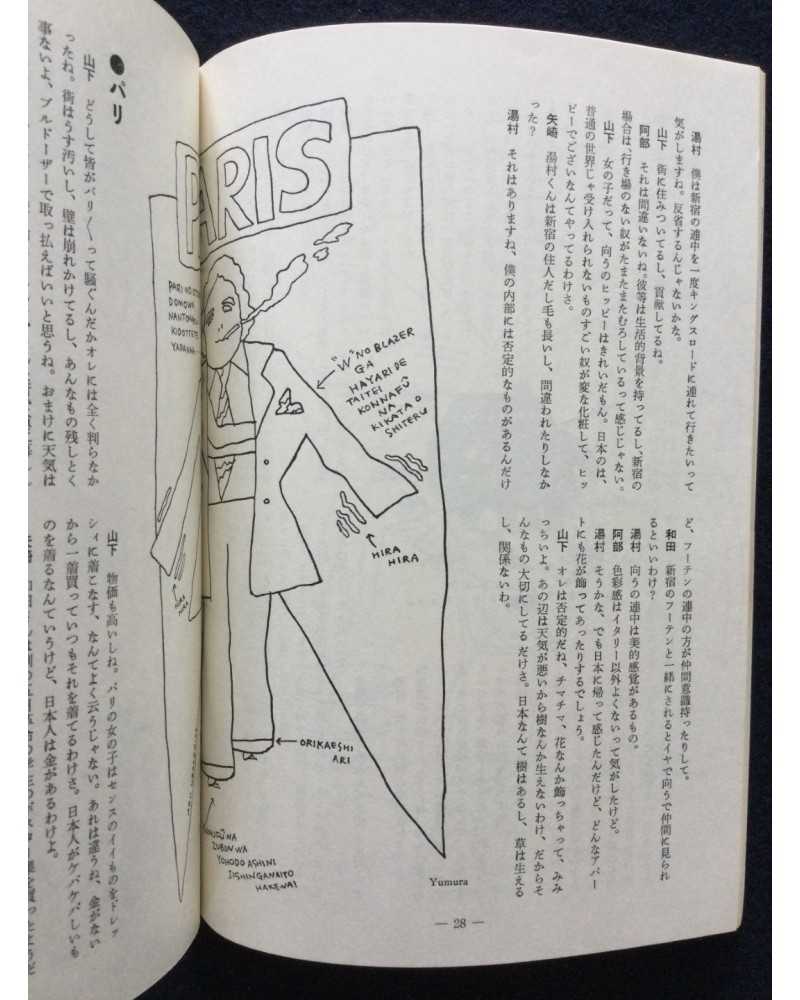 湯村　僕は新宿の連中を一度キングスロードに連れて行きたいって
気がしますね。反省するんじゃないかな。
山下　街に住みついてるし、貢献してるね。
阿部　それは間違いないね。彼等は生活的背景を持ってるし、新宿の
場合は、行き場のない奴がたまたまたむろしているって感じじゃない。
山下　女の子だって、向うのヒッピーはきれいだもん。日本のは、
普通の世界じゃ受け入れられないものすごい奴が変な化粧して、ヒッ
ピーでございなんてやってるわけさ。
矢崎　湯村くんは新宿の住人だし毛も長いし、間違われたりしなか
った？
湯村　それはありますね、僕の内部には否定的なものがあるんだけ
ど、フーテンの連中の方が仲間意識持ったりして。
和田　新宿のフーテンと一緒にされるとイヤで向うで仲間に見られ
るといいわけ？
湯村　向うの連中は美的感覚があるもの。
阿部　色彩感はイタリー以外よくないって気がしたけど。
湯村　そうかな、でも日本に帰って感じたんだけど、どんなアパー
トにも花が飾ってあったりするでしょう。
山下　オレは否定的だね、チマチマ、花なんか飾っちゃって、みみ
っちいよ。あの辺は天気が悪いから樹なんか生えないわけ、だからそ
んなもの大切にしてるだけさ。日本なんて樹はあるし、草は生える
し、関係ないわ。
PARIS
"W" NO BLAZER
GA
HAYARI DE
TAITEI
KONNAFŪ
NA
KIKATA O
SHITERU
HIRA
HIRA
ORIKAESHI
ARI
ZUBON WA
YOHODO ASHINI
JISHINGANAITO
HAKENAI
Yumura
— 28 —
●パリ
山下　どうして皆がパリ〳〵って騒ぐんだかオレには全く判らなか
ったね。街はうす汚いし、壁は崩れかけてるし、あんなもの残しとく
事ないよ、ブルドーザーで取っ払えばいいと思うね。おまけに天気は
山下　物価も高いしね。パリの女の子はセンスのイイものをトレッ
シィに着こなす、なんてよく云うじゃない。あれは違うね、金がない
から一着買っていつもそれを着てるわけさ。日本人がケバケバしいも
のを着るなんていうけど、日本人は金があるわけよ。